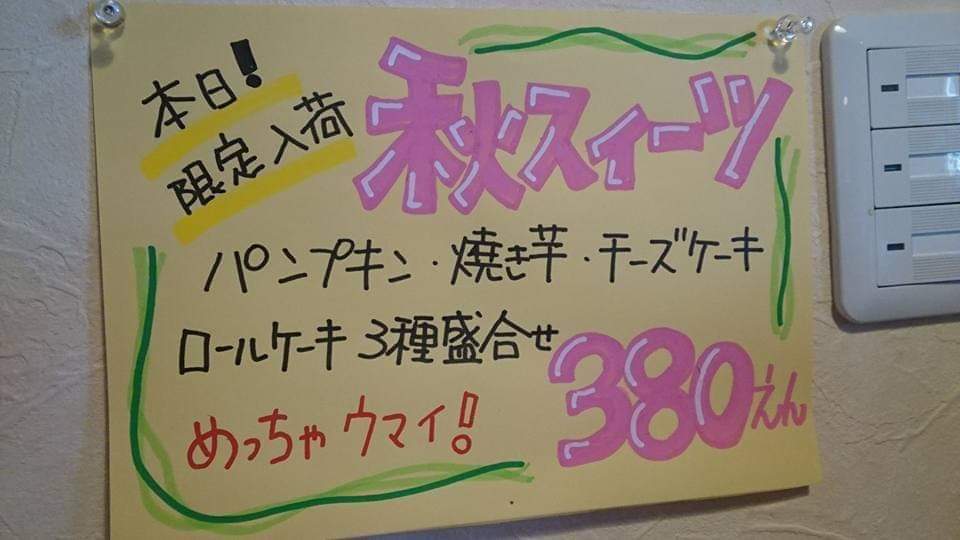 本日!
限定入荷
秋スイーツ
パンプキン・焼き芋・チーズケーキ
ロールケーキ 3種盛合せ
めっちゃウマイ!
380えん